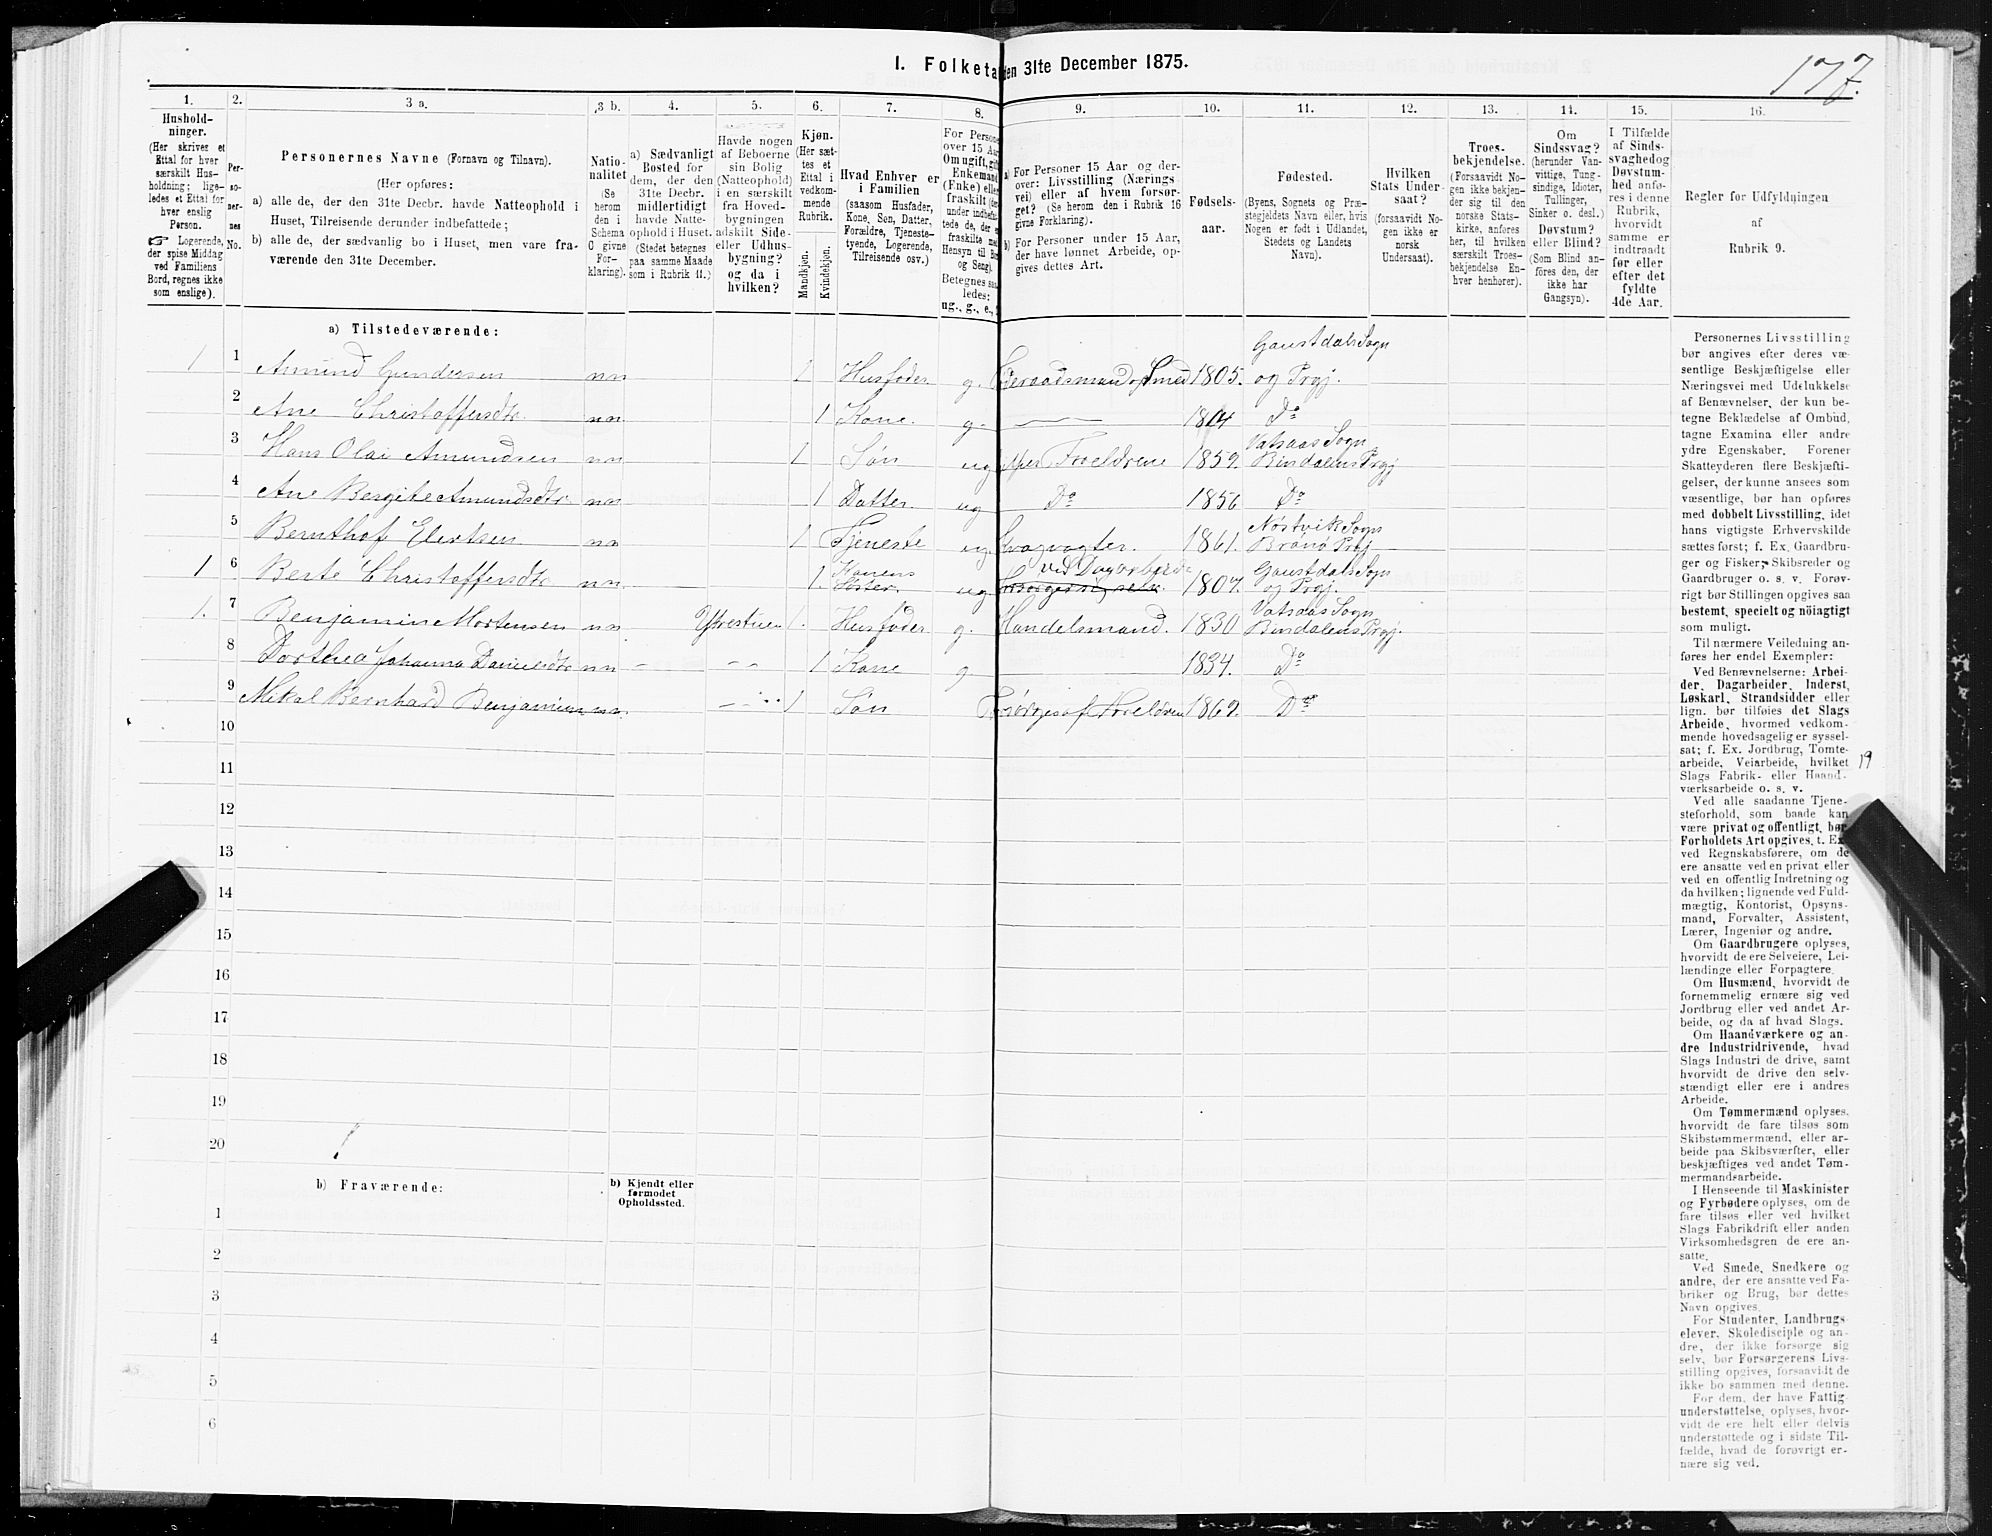 I. Folketa den 31te December 1875.
177.
1.
2.
3 a.
3 b.
4.
5.
6.
7.
8.
9.
10.
11.
12.
13.
14.
15.
16.
Hushold-
ninger.
(Her skrives et
Ettal for hver
særskilt Hus-
holdning; lige-
ledes et Ettal for
hver enslig
Person.
☞ Logerende,
der spise Middag
ved Familiens
Bord, regnes ikke
som enslige).
Per-
so-
ner-
nes
No.
Personernes Navne (Fornavn og Tilnavn).
(Her opføres:
a) alle de, der den 31te Decbr. havde Natteophold i
Huset, Tilreisende derunder indbefattede;
b) alle de, der sædvanlig bo i Huset, men vare fra-
værende den 31te December.
Natio-
nalitet
(Se
herom
den i
Schema
O givne
For-
klaring).
a) Sædvanligt
Bosted for
dem, der den
31te Decbr.
midlertidigt
havde Natte-
ophold i Huset.
(Stedet betegnes
paa samme Maade
som i Rubrik 11.)
Havde nogen
af Beboerne
sin Bolig
(Natteophold)
i en særskilt
fra Hoved-
bygningen
adskilt Side-
eller Udhus-
bygning?
og da i
hvilken?
Kjøn.
(Her sæt-
tes et
Ettal i
vedkom-
mende
Rubrik.
Mandkjøn.
Kvindekjøn.
Hvad Enhver er
i Familien
(saasom Husfader,
Kone, Søn, Datter,
Forældre, Tjeneste-
tyende, Logerende,
Tilreisende osv.)
For Perso
over 15 Aa
Om ugift, gif
Enkemand
(Enke) elle
fraskilt
under indbe
tede de, der e
fraskilte me
Hensyn til Bo
og Seng).
Betegnes saa
ledes:
ug., g., e.,
a) For Personer 15 Aar og der-
over: Livsstilling (Nærings
vei) eller af hvem forsør-
get? (Se herom den i Rubrik 16
givne Forklaring).
b) For Personer under 15 Aar,
der have lønnet Arbeide, op-
gives dettes Art.
Fødsels-
aar.
Fødested.
(Byens, Sognets og Præ-
stegjeldets Navn eller, hvis
Nogen er født i Udlandet,
Stedets og Landets
Navn).
Hvilken
Stats Under-
saat?
(forsaavidt No-
gen ikke er
norsk
Undersaat).
Troes-
bekjendelse.
(Forsaavidt No-
gen ikke bekjen-
der sig til den
norske Stats-
kirke, anføres
her, til hvilken
særskilt Troes-
bekjendelse En-
hver henhører).
Om
Sindssvag?
(herunder Van-
vittige, Tung-
sindige, Idioter,
Tullinger,
Sinker o. desl.)
Døvstum?
eller Blind?
(Som Blind an-
føres den, der
ikke har
Gangsyn).
I Tilfælde
af Sinds-
svaghed og
Døvstum-
hed anfø-
res i denne
Rubrik,
hvorvidt
samme er
indtraadt
før eller
efter det
fyldte
4de Aar.
Regler for Udfyldningen
af
Rubrik 9.
a) Tilstedeværende:
1 1 Amund Gundersen nn 1 Husfader g. Føderaadsmand og Smed 1805. Gaustdals Sogn og Prgj.
2 Ane Christoffersdtr nn 1 Kone g. 1814 Do
3 Hans Olai Amundsen nn 1 Søn ug Hjælper Foreldrene 1859. Vatsaas Sogn Bindalens Prgj
4 Ane Bergite Amundsdtr nn 1 Datter ug Do 1856 Do
5 Bernthof Elertsen nn 1 Tjeneste ug. Kvægvogter. 1861. Nøstvik Sogn Brønø Prgj
1 6 Berte Christoffersdtr nn 1 Konens Søster ug ved Dagarbeide 1807. Gaustdals Sogn og Prgj.
1. 7 Benjamin Mortensen nn Yttrestuen 1. Husfader g. Handelsmand. 1830 Vatsaas Sogn Bindalens Prgj.
8 Dorthea Johanna Danielsdtr nn - - - 1 Kone g 1834. Do
9 Mikal Bernhard Benjaminsen nn - - 1 Søn Forsørges af Foreldrene 1869. Do
10
11
12
13
14
15
16
17
18
19
20
b) Fraværende:
b) Kjendt eller
formodet
Opholdssted.
1
2
3
4
5
6
Personernes Livsstilling
bør angives efter deres væ-
sentlige Beskjæftigelse eller
Næringsvei med Udelukkelse
af Benævnelser, der kun be-
tegne Beklædelse af Ombud,
tagne Examina eller andre
ydre Egenskaber. Forener
Skatteyderen flere Beskjæfti-
gelser, der kunne ansees som
væsentlige, bør han opføres
med dobbelt Livsstilling, idet
hans vigtigste Erhvervskilde
sættes først; f. Ex. Gaardbru-
ger og Fisker; Skibsreder og
Gaardbruger o. s. v. Forøv-
rigt bør Stillingen opgives saa
bestemt, specielt og nöiagtigt
som muligt.
Til nærmere Veiledning an-
føres her endel Exempler:
Ved Benævnelserne: Arbei-
der, Dagarbeider, Inderst,
Løskarl, Strandsidder eller
lign. bør tilføies det Slags
Arbeide, hvormed vedkom-
mende hovedsagelig er syssel-
sat; f. Ex. Jordbrug, Tomte-
arbeide, Veiarbeide, hvilket
Slags Fabrik- eller Haand-
værksarbeide o. s. v.
Ved alle saadanne Tjene-
steforhold, som baade kan
være privat og offentligt, bør
Forholdets Art opgives, t. Ex.
ved Regnskabsførere, om de
ere ansatte ved en privat eller
ved en offentlig Indretning og
da hvilken; lignende ved Fuld-
mægtig, Kontorist, Opsyns-
mand, Forvalter, Assistent,
Lærer, Ingeniør og andre.
Om Gaardbrugere oplyses,
hvorvidt de ere Selveiere, Lei-
lændinge eller Forpagtere.
Om Husmænd, hvorvidt de
fornemmelig ernære sig ved
Jordbrug eller ved andet Ar-
beide, og da af hvad Slags.
Om Haandværkere og an-
dre Industridrivende, hvad
Slags Industri de drive, samt
hvorvidt de drive den selv-
stændigt eller ere i andres
Arbeide.
Om Tømmermænd oplyses,
hvorvidt de fare tilsøs som
Skibstømmermænd, eller ar-
beide paa Skibsværfter, eller
beskjæftiges ved andet Tøm-
mermandsarbeide.
I Henseende til Maskinister
og Fyrbødere oplyses, om de
fare tilsøs eller ved hvilket
Slags Fabrikdrift eller anden
Virksomhedsgren de ere an-
satte.
Ved Smede, Snedkere og
andre, der ere ansatte ved Fa-
briker og Brug, bør dettes
Navn opgives.
For Studenter, Landbrugs-
elever, Skoledisciple og an-
dre, der ikke forsørge sig
selv, bør Forsørgerens Livs-
stilling opgives, forsaavidt de
ikke bo sammen med denne.
For dem, der have Fattig-
understøttelse, oplyses, hvor-
vidt de ere helt eller delvis
understøttede og i sidste Til-
fælde, hvad de forøvrigt er-
nære sig ved.
19